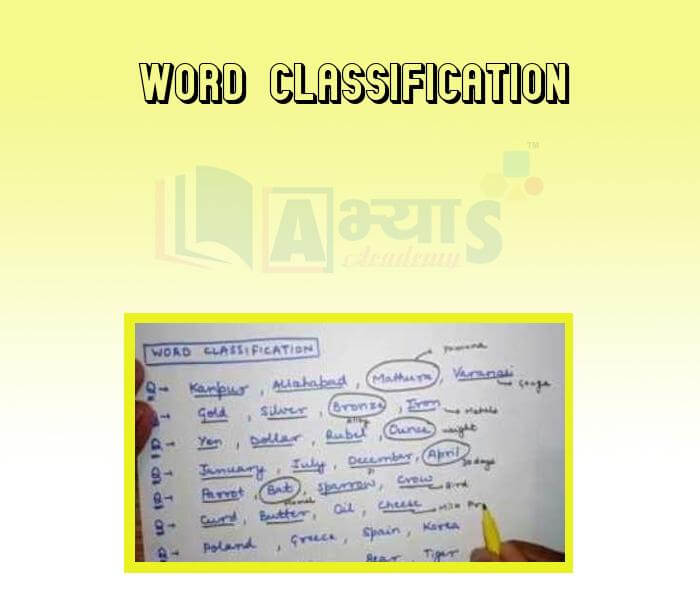 WORD CLASSIFICATION
TM
Aभ्याS
Academy
WORD CLASSIFICATION
Yamuna
Q→ Kanpur, Allahabad, Mathura, Varanasi
Ganga
Q→ Gold, Silver, Bronze, Iron → Metals
Alloy
Q→ Yen, Dollar, Rubel, Ounce weight
Q→ January, July, December, April
31 30 days
Q→ Parrot, Bat, Sparrow, Crow Bird
Q→ Curd, Butter, Oil, Cheese Milk
Q→ Poland, Greece, Spain, Korea
Bear, Tiger